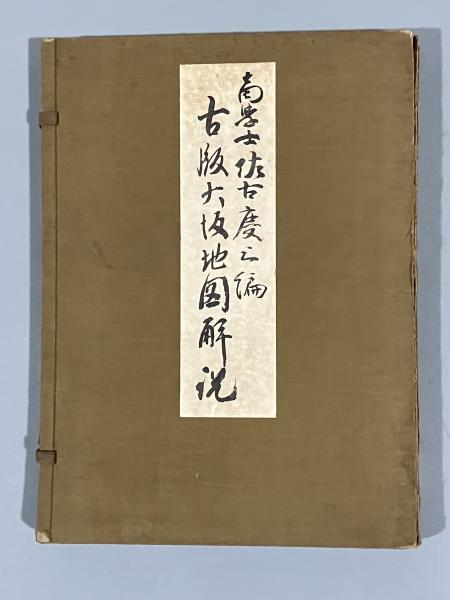 商学士佐古慶三編
古版大坂地図解説